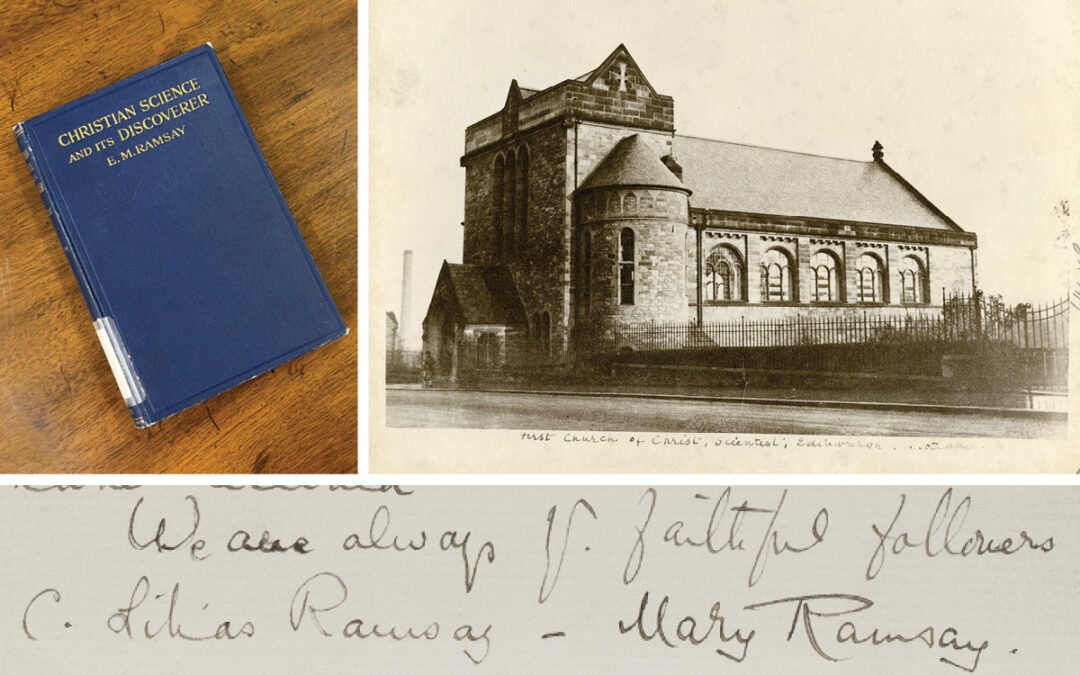 CHRISTIAN SCIENCE
AND ITS DISCOVERER
E. M. RAMSAY
First Church of Christ, Scientist, Edinburgh
We are always yr. faithful followers
C. Lilias Ramsay – Mary Ramsay.